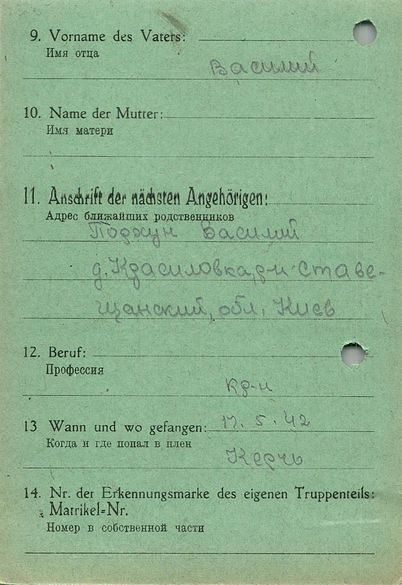 9. Vorname des Vaters:
Имя отца
Василий
10. Name der Mutter:
Имя матери
11. Anschrift der nächsten Angehörigen:
Адрес ближайших родственников
Василий
д. Красиловка р-н Ставе-
щанский, обл. Киев
12. Beruf:
Профессия
кр-н
13 Wann und wo gefangen: 17. 5. 42
Когда и где попал в плен
Керчь
14. Nr. der Erkennungsmarke des eigenen Truppenteils:
Matrikel=Nr.
Номер в собственной части